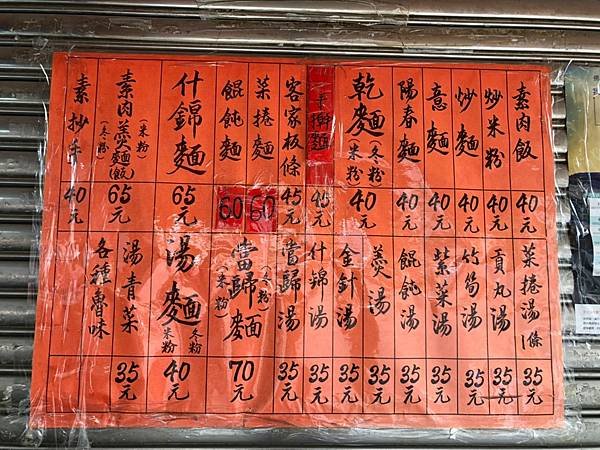 素肉飯 40元
炒米粉 40元
炒麵 40元
意麵 40元
陽春麵 40元
乾麵(冬粉)(米粉) 40元
45元
客家板條 45元
菜捲麵 60
餛飩麵 60
什錦麵 65元
素肉羹麵(飯)(米粉)(冬粉) 65元
素抄手 40元
菜捲湯1條 35元
貢丸湯 35元
竹筍湯 35元
紫菜湯 35元
餛飩湯 35元
羹湯 35元
金針湯 35元
什錦湯 35元
當歸湯 35元
當歸麵(冬粉)(米粉) 70元
湯麵 冬粉 米粉 40元
湯青菜 35元
各種魯味